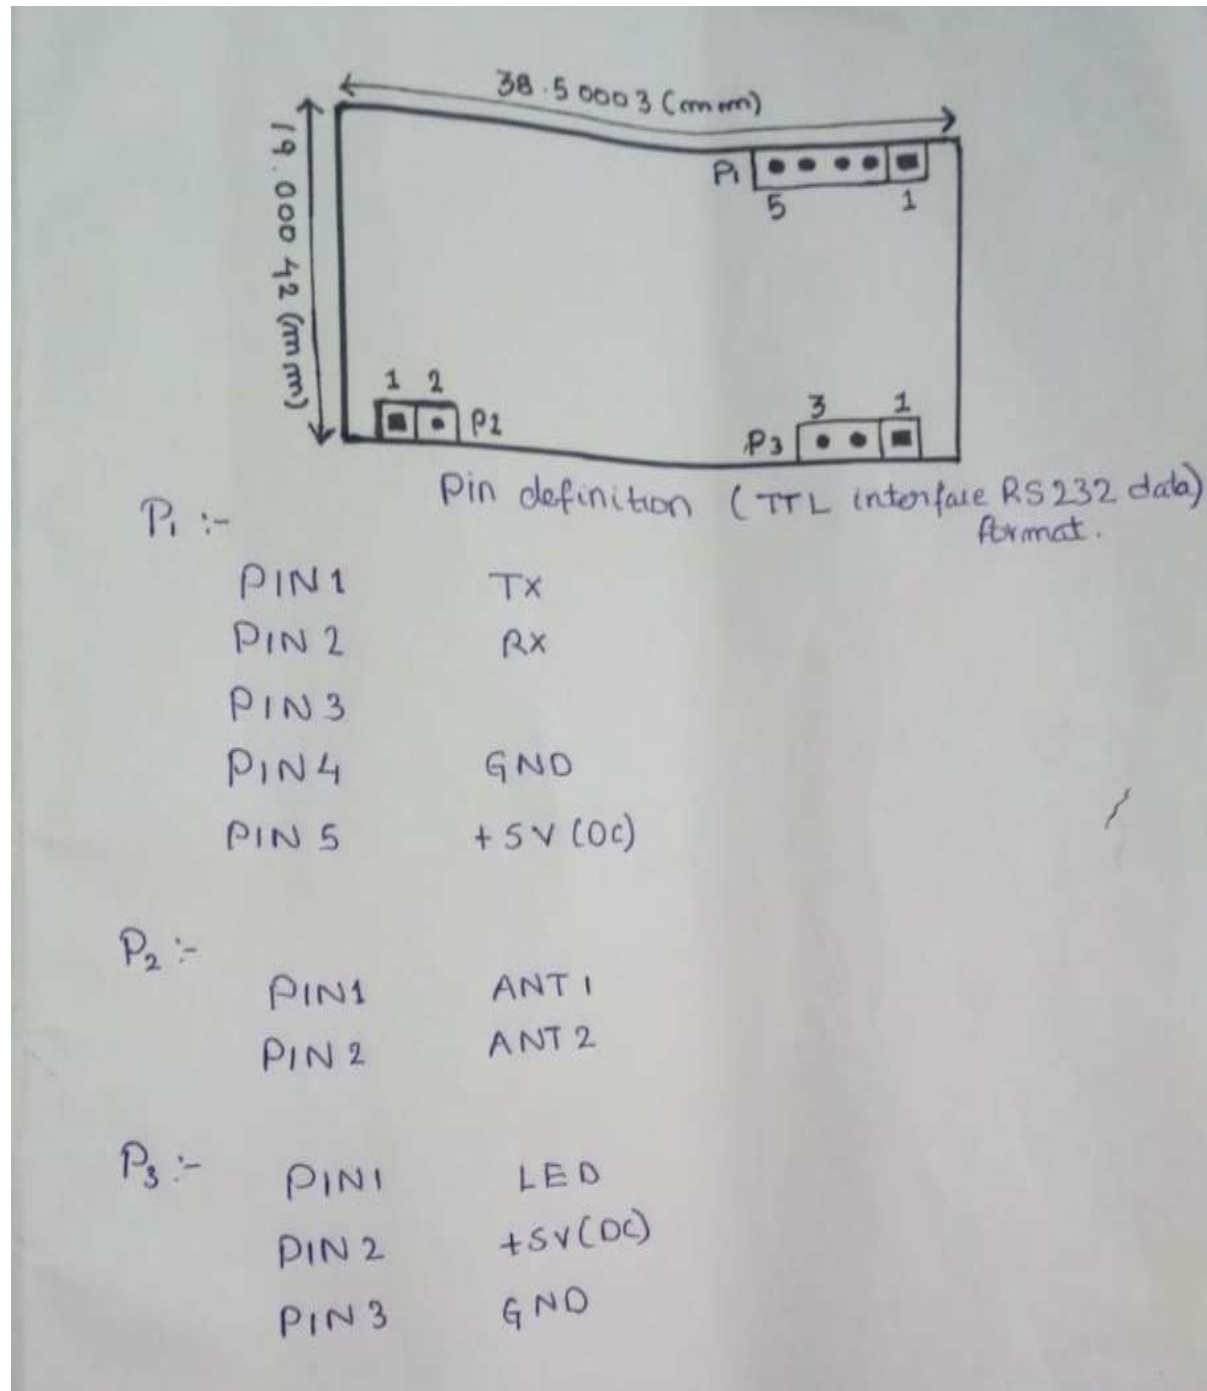 38.50003 (mm)
19.00042 (mm)
P1
5 1
1 2
P2
3 1
P3
Pin definition (TTL interface RS232 data)
format.
P1 :-
PIN1 TX
PIN 2 RX
PIN3
PIN4 GND
PIN 5 +5V (DC)
P2 :-
PIN1 ANT 1
PIN 2 ANT 2
P3 :-
PIN1 LED
PIN 2 +5V (DC)
PIN 3 GND